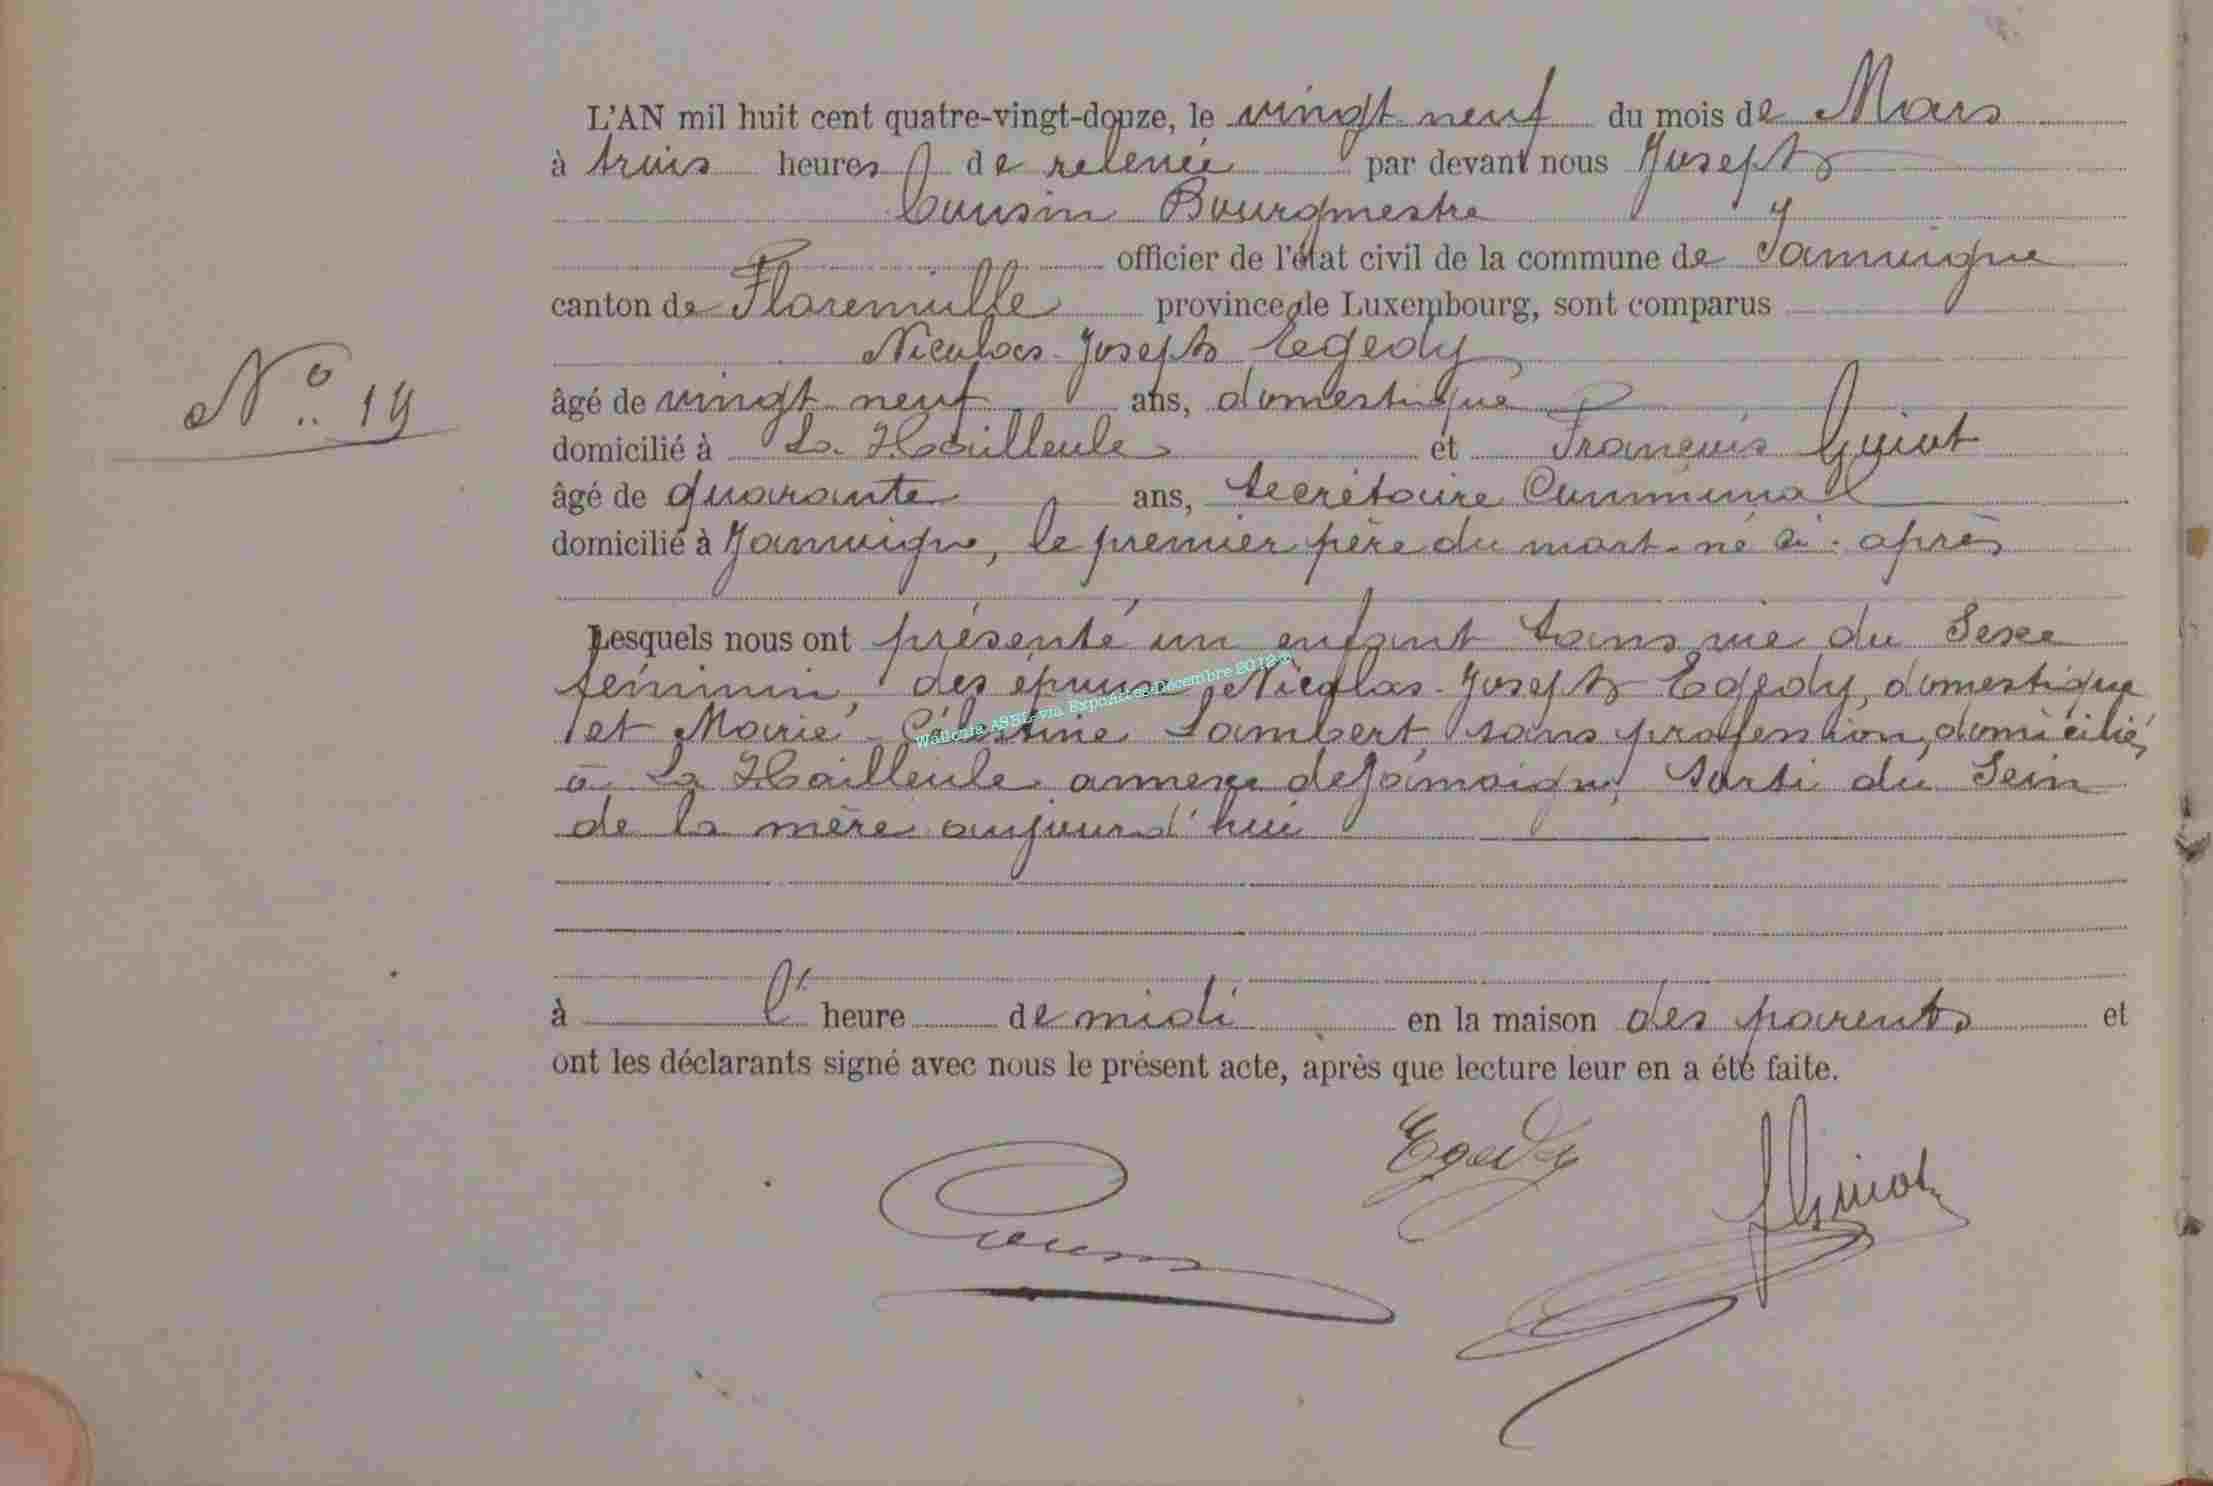 L'AN mil huit cent quatre-vingt-douze, le vingt neuf du mois de Mars
à trois heures de relevée par devant nous Joseph
Cousin Bourgmestre
officier de l'état civil de la commune de Jamoigne
canton de Florenville province de Luxembourg, sont comparus
Nicolas-Joseph Egedy
âgé de vingt neuf ans, domestique
N° 19
domicilié à La Hailleule et François Guiot
âgé de quarante ans, Secrétaire Communal
domicilié à Jamoigne, le premier père du mort-né ci-après
Lesquels nous ont présenté un enfant sans vie du Sexe
féminin, des époux Nicolas-Joseph Egedy, domestique
et Marie-Célestine Lambert, sans profession, domiciliés
à La Hailleule annexe de Jamoigne, Sorti du Sein
de la mère aujourd'hui
Wallonia ASBL via ExpoActes-Décembre 2012©
à l' heure de midi en la maison des parents et
ont les déclarants signé avec nous le présent acte, après que lecture leur en a été faite.
Egedy
Cousin
f Guiot